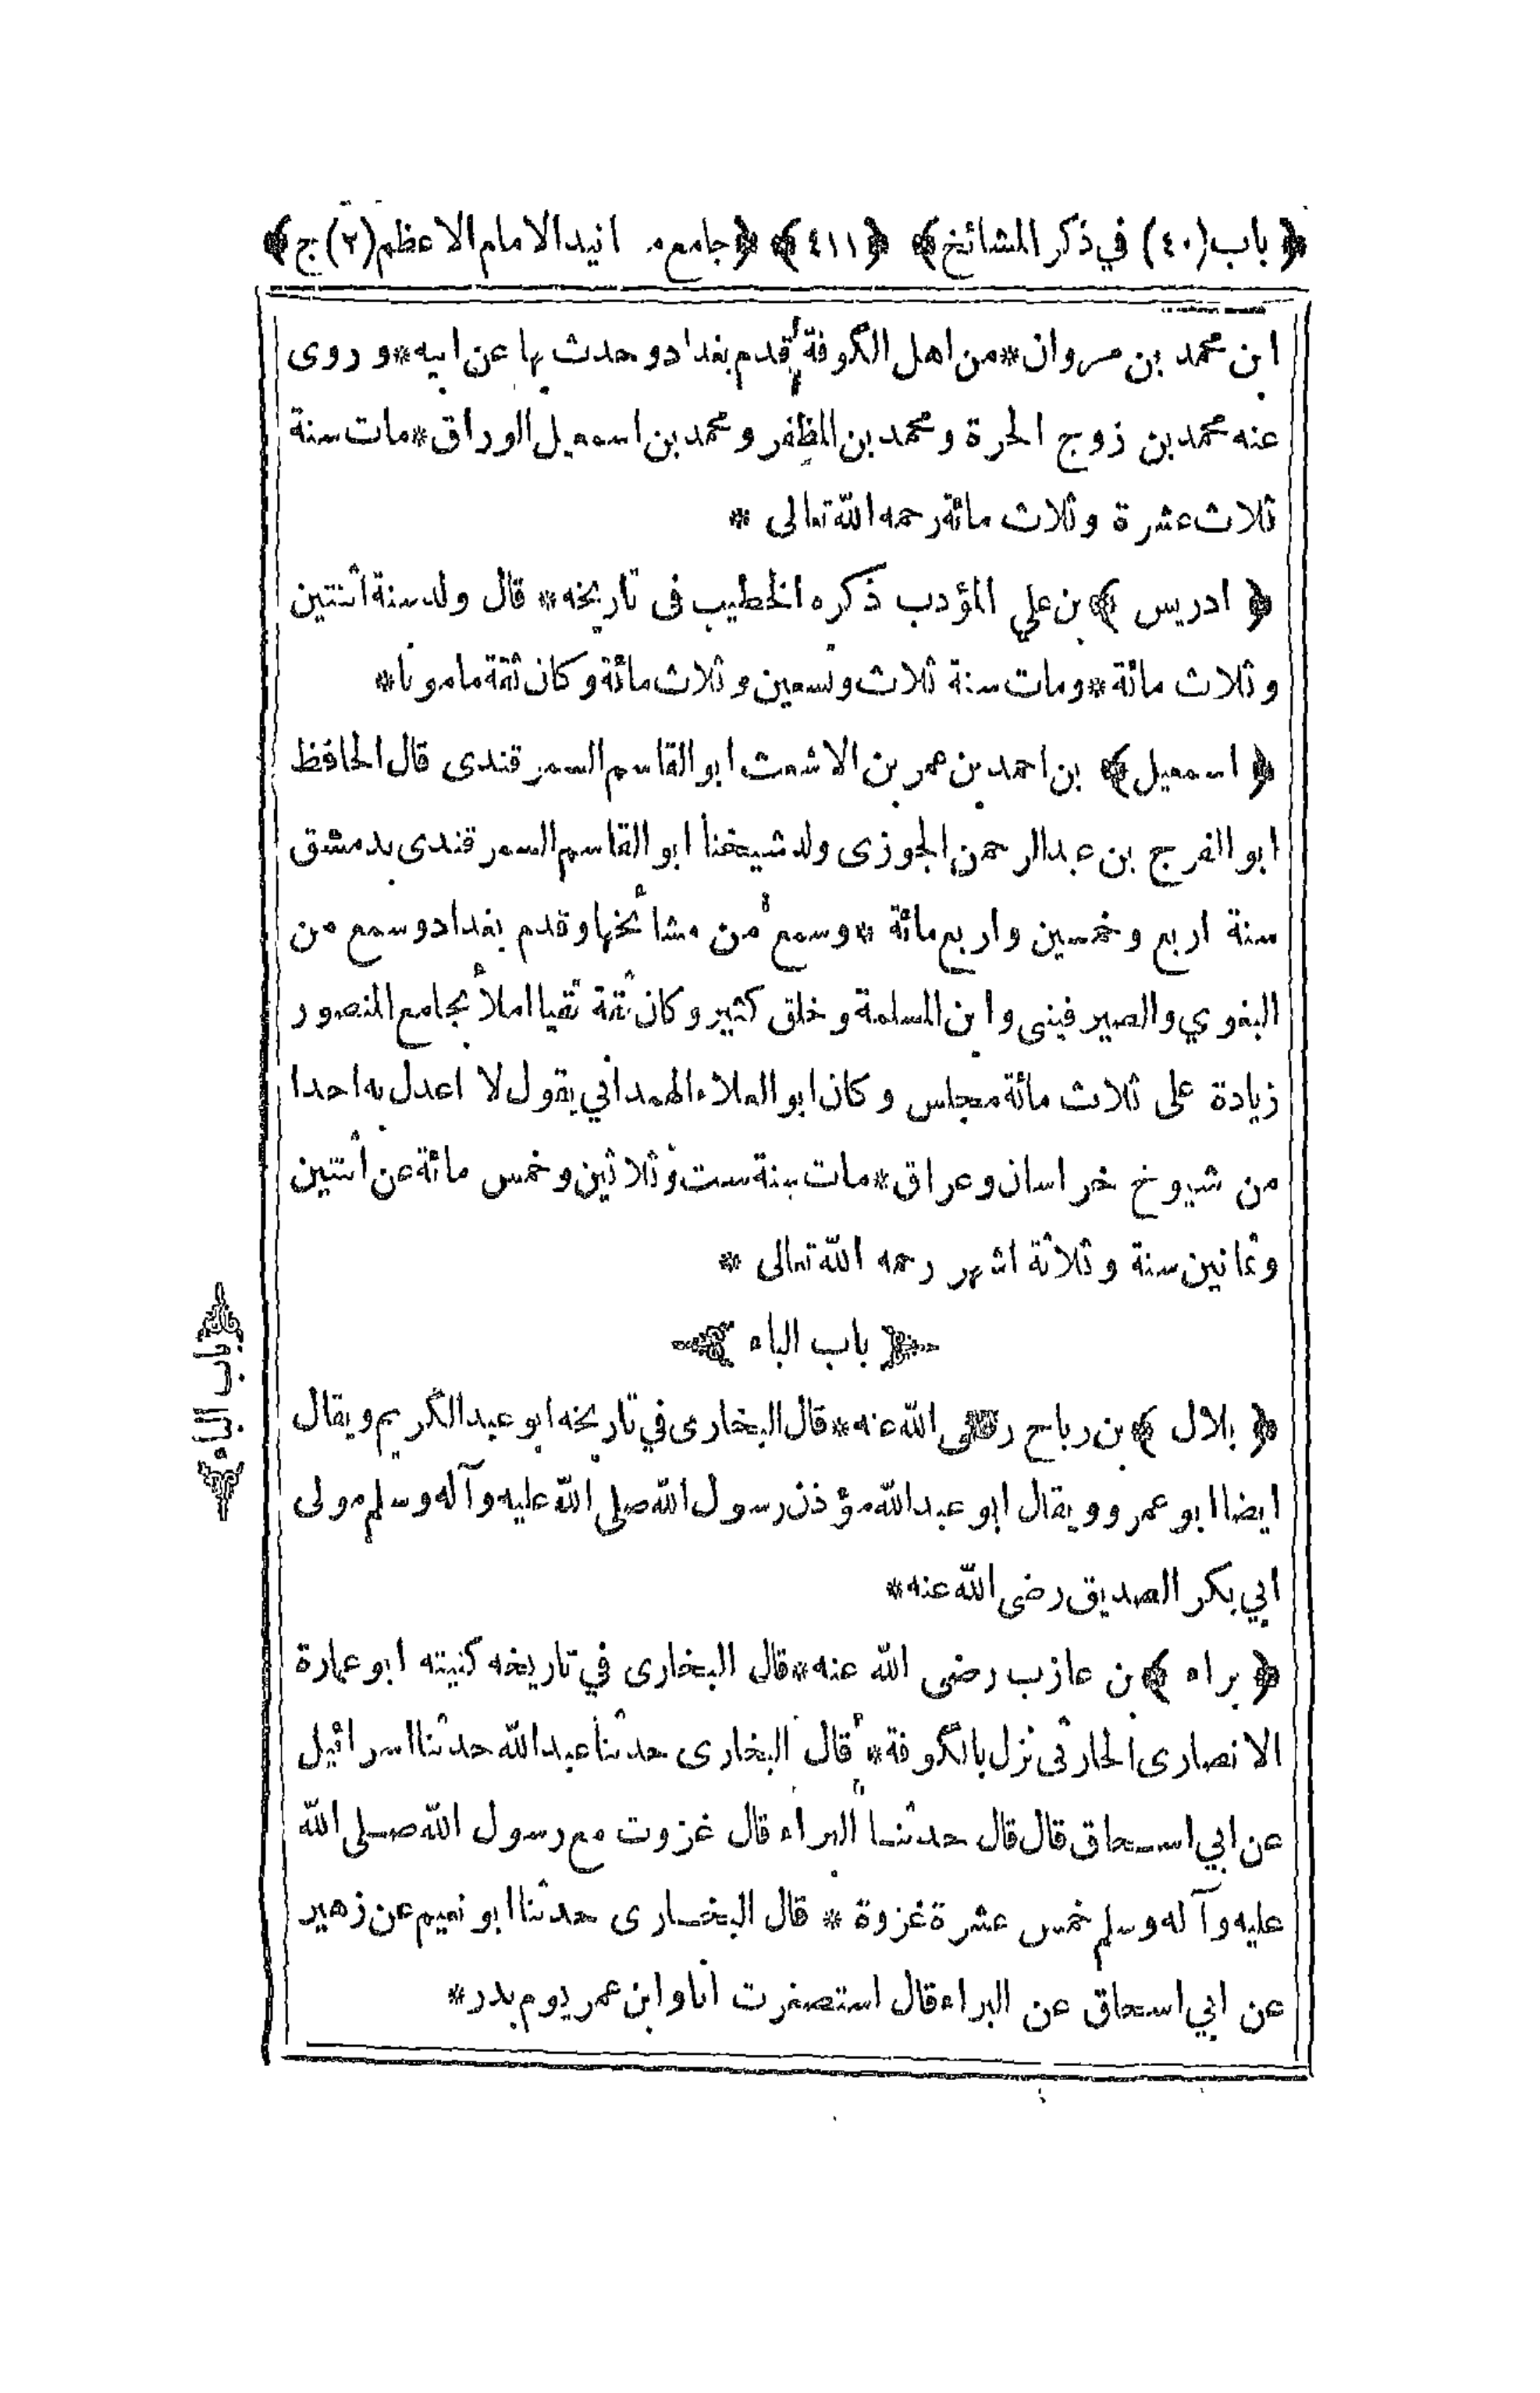 ﴿ باب (٤٠) في ذكر المشائخ ﴾ ﴿ ٤١١ ﴾ ﴿ جامع م انيد الامام الاعظم (٢) ج ﴾
ابن محمد بن مروان * من اهل الكوفة قدم بغداد وحدث بها عن ابيه * وروى
عنه محمد بن زوج الحرة ومحمد بن المظفر ومحمد بن اسمعيل الوراق * مات سنة
ثلاث عشرة وثلاث مائة رحمه الله تعالى *
﴿ ادريس ﴾ بن علي المؤدب ذكره الخطيب فى تاريخه * قال ولد سنة اثنتين
وثلاث مائة * ومات سنة ثلاث وتسعين وثلاث مائة وكان ثقة مامونا *
﴿ اسمعيل ﴾ بن احمد بن عمر بن الاشعث ابو القاسم السمرقندى قال الحافظ
ابو الفرج بن عبدالرحمن الجوزى ولد شيخنا ابو القاسم السمرقندى بدمشق
سنة اربع وخمسين واربع مائة * وسمع من مشائخها وقدم بغداد وسمع من
البغوي والصيرفينى وابن المسلمة وخلق كثير وكان ثقة تقيا املأ بجامع المنصور
زيادة على ثلاث مائة مجلس وكان ابو العلاء الهمدانى يقول لا اعدل به احدا
من شيوخ خراسان وعراق * مات سنة ست وثلاثين وخمس مائة عن اثنتين
وثمانين سنة وثلاثة اشهر رحمه الله تعالى *
﴿ باب الباء ﴾
﴿ بلال ﴾ بن رباح رضى الله عنه * قال البخارى في تاريخه ابو عبد الكريم ويقال
ايضا ابو عمر وويقال ابو عبدالله مؤذن رسول الله صلى الله عليه وآله وسلم مولى
ابي بكر الصديق رضى الله عنه *
﴿ براء ﴾ بن عازب رضى الله عنه * قال البخارى في تاريخه كنيته ابو عمارة
الانصارى الحارثى نزل بالكوفة * قال البخارى حدثنا عبدالله حدثنا اسرائيل
عن ابي اسحاق قال قال حدثنا البراء قال غزوت مع رسول الله صلى الله
عليه وآله وسلم خمس عشرة غزوة * قال البخارى حدثنا ابو نعيم عن زهير
عن ابي اسحاق عن البراء قال استصغرت انا وابن عمر يوم بدر *
﴿ باب الباء ﴾